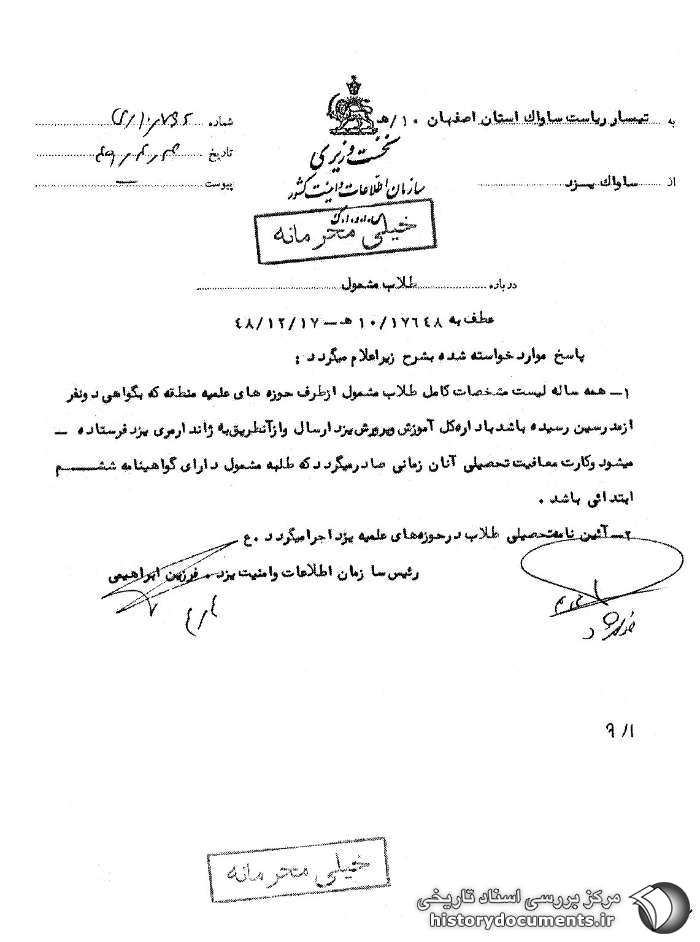 به تیمسار ریاست ساواک استان اصفهان ۱۰/هـ
از ساواک یزد
نخست وزیری
سازمان اطلاعات و امنیت کشور
س.ا.و.ا.ک
شماره
تاریخ
پیوست —
خیلی محرمانه
درباره طلاب مشمول
عطف به ۱۰/۱۷۶۴۸ هـ – ۴۸/۱۲/۱۷
پاسخ موارد خواسته شده بشرح زیر اعلام میگردد :
۱– همه ساله لیست مشخصات کامل طلاب مشمول از طرف حوزه های علمیه منطقه که بگواهی دو نفر
از مدرسین رسیده باشد باداره کل آموزش وپرورش یزد ارسال و از آنطریق به ژاندارمری یزد فرستاده –
میشود وکارت معافیت تحصیلی آنان زمانی صادر میگردد که طلبه مشمول دارای گواهینامه ششم
ابتدائی باشد .
۲– آئین نامه تحصیلی طلاب در حوزه های علمیه یزد اجرا میگردد .ع
رئیس سازمان اطلاعات وامنیت یزد . فرزین ابراهیمی
۹/۱
خیلی محرمانه
مرکز بررسی اسناد تاریخی
historydocuments.ir